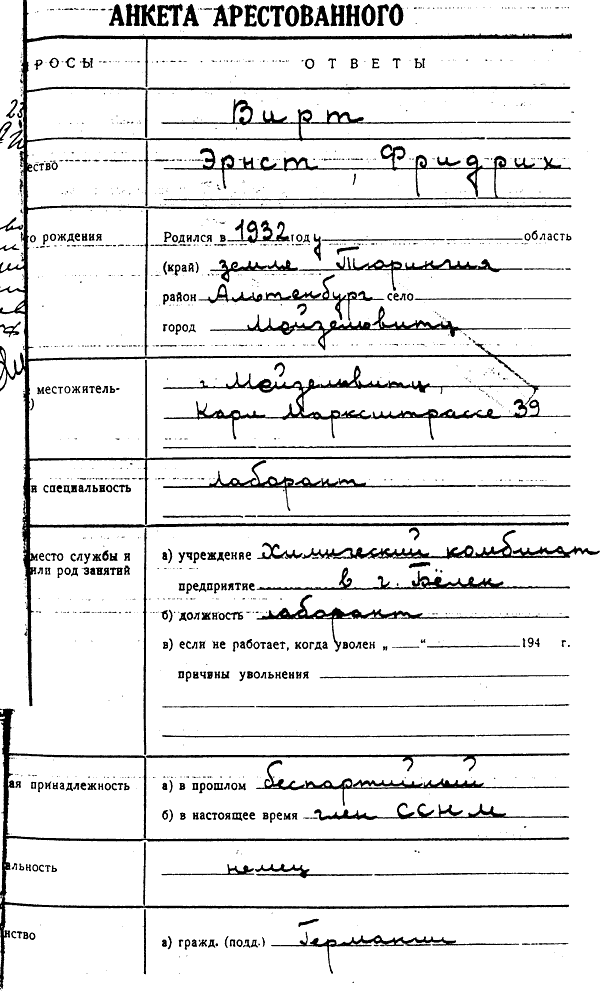 АНКЕТА АРЕСТОВАННОГО
РОСЫ ОТВЕТЫ
Вирт
ество Эрнст, Фридрих
о рождения Родился в 1932 году область
(край) земле Тюрингия
район Альтенбург село
город Мойзельвитц
местожитель- г. Мойзельвитц,
) Карл Марксштрассе 39
и специальность лаборант
место службы и а) учреждение Химический комбинат
или род занятий предприятие в г. Бёлен
б) должность лаборант
в) если не работает, когда уволен „ “ 194 г.
причины увольнения
ая принадлежность а) в прошлом беспартийный
б) в настоящее время член ССНМ
альность немец
нство а) гражд. (подд.) Германии